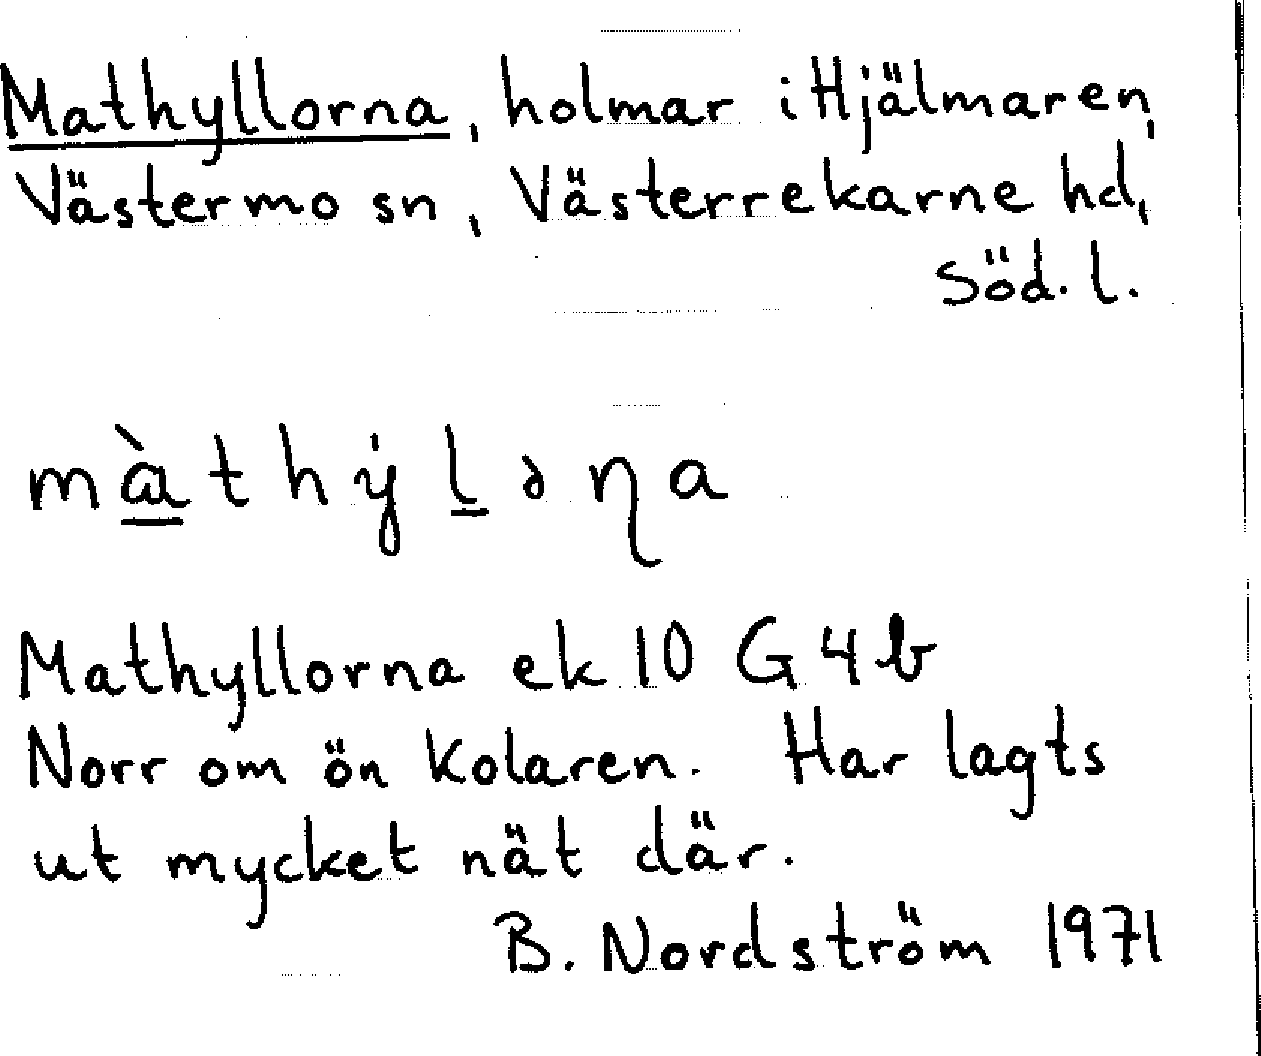 Mathyllorna, holmar i Hjälmaren,
Västermo sn, Västerrekarne hd,
Söd. l.
Mathyllorna ek 10 G 4 b
Norr om ön Kolaren. Har lagts
ut mycket nät där.
B. Nordström 1971